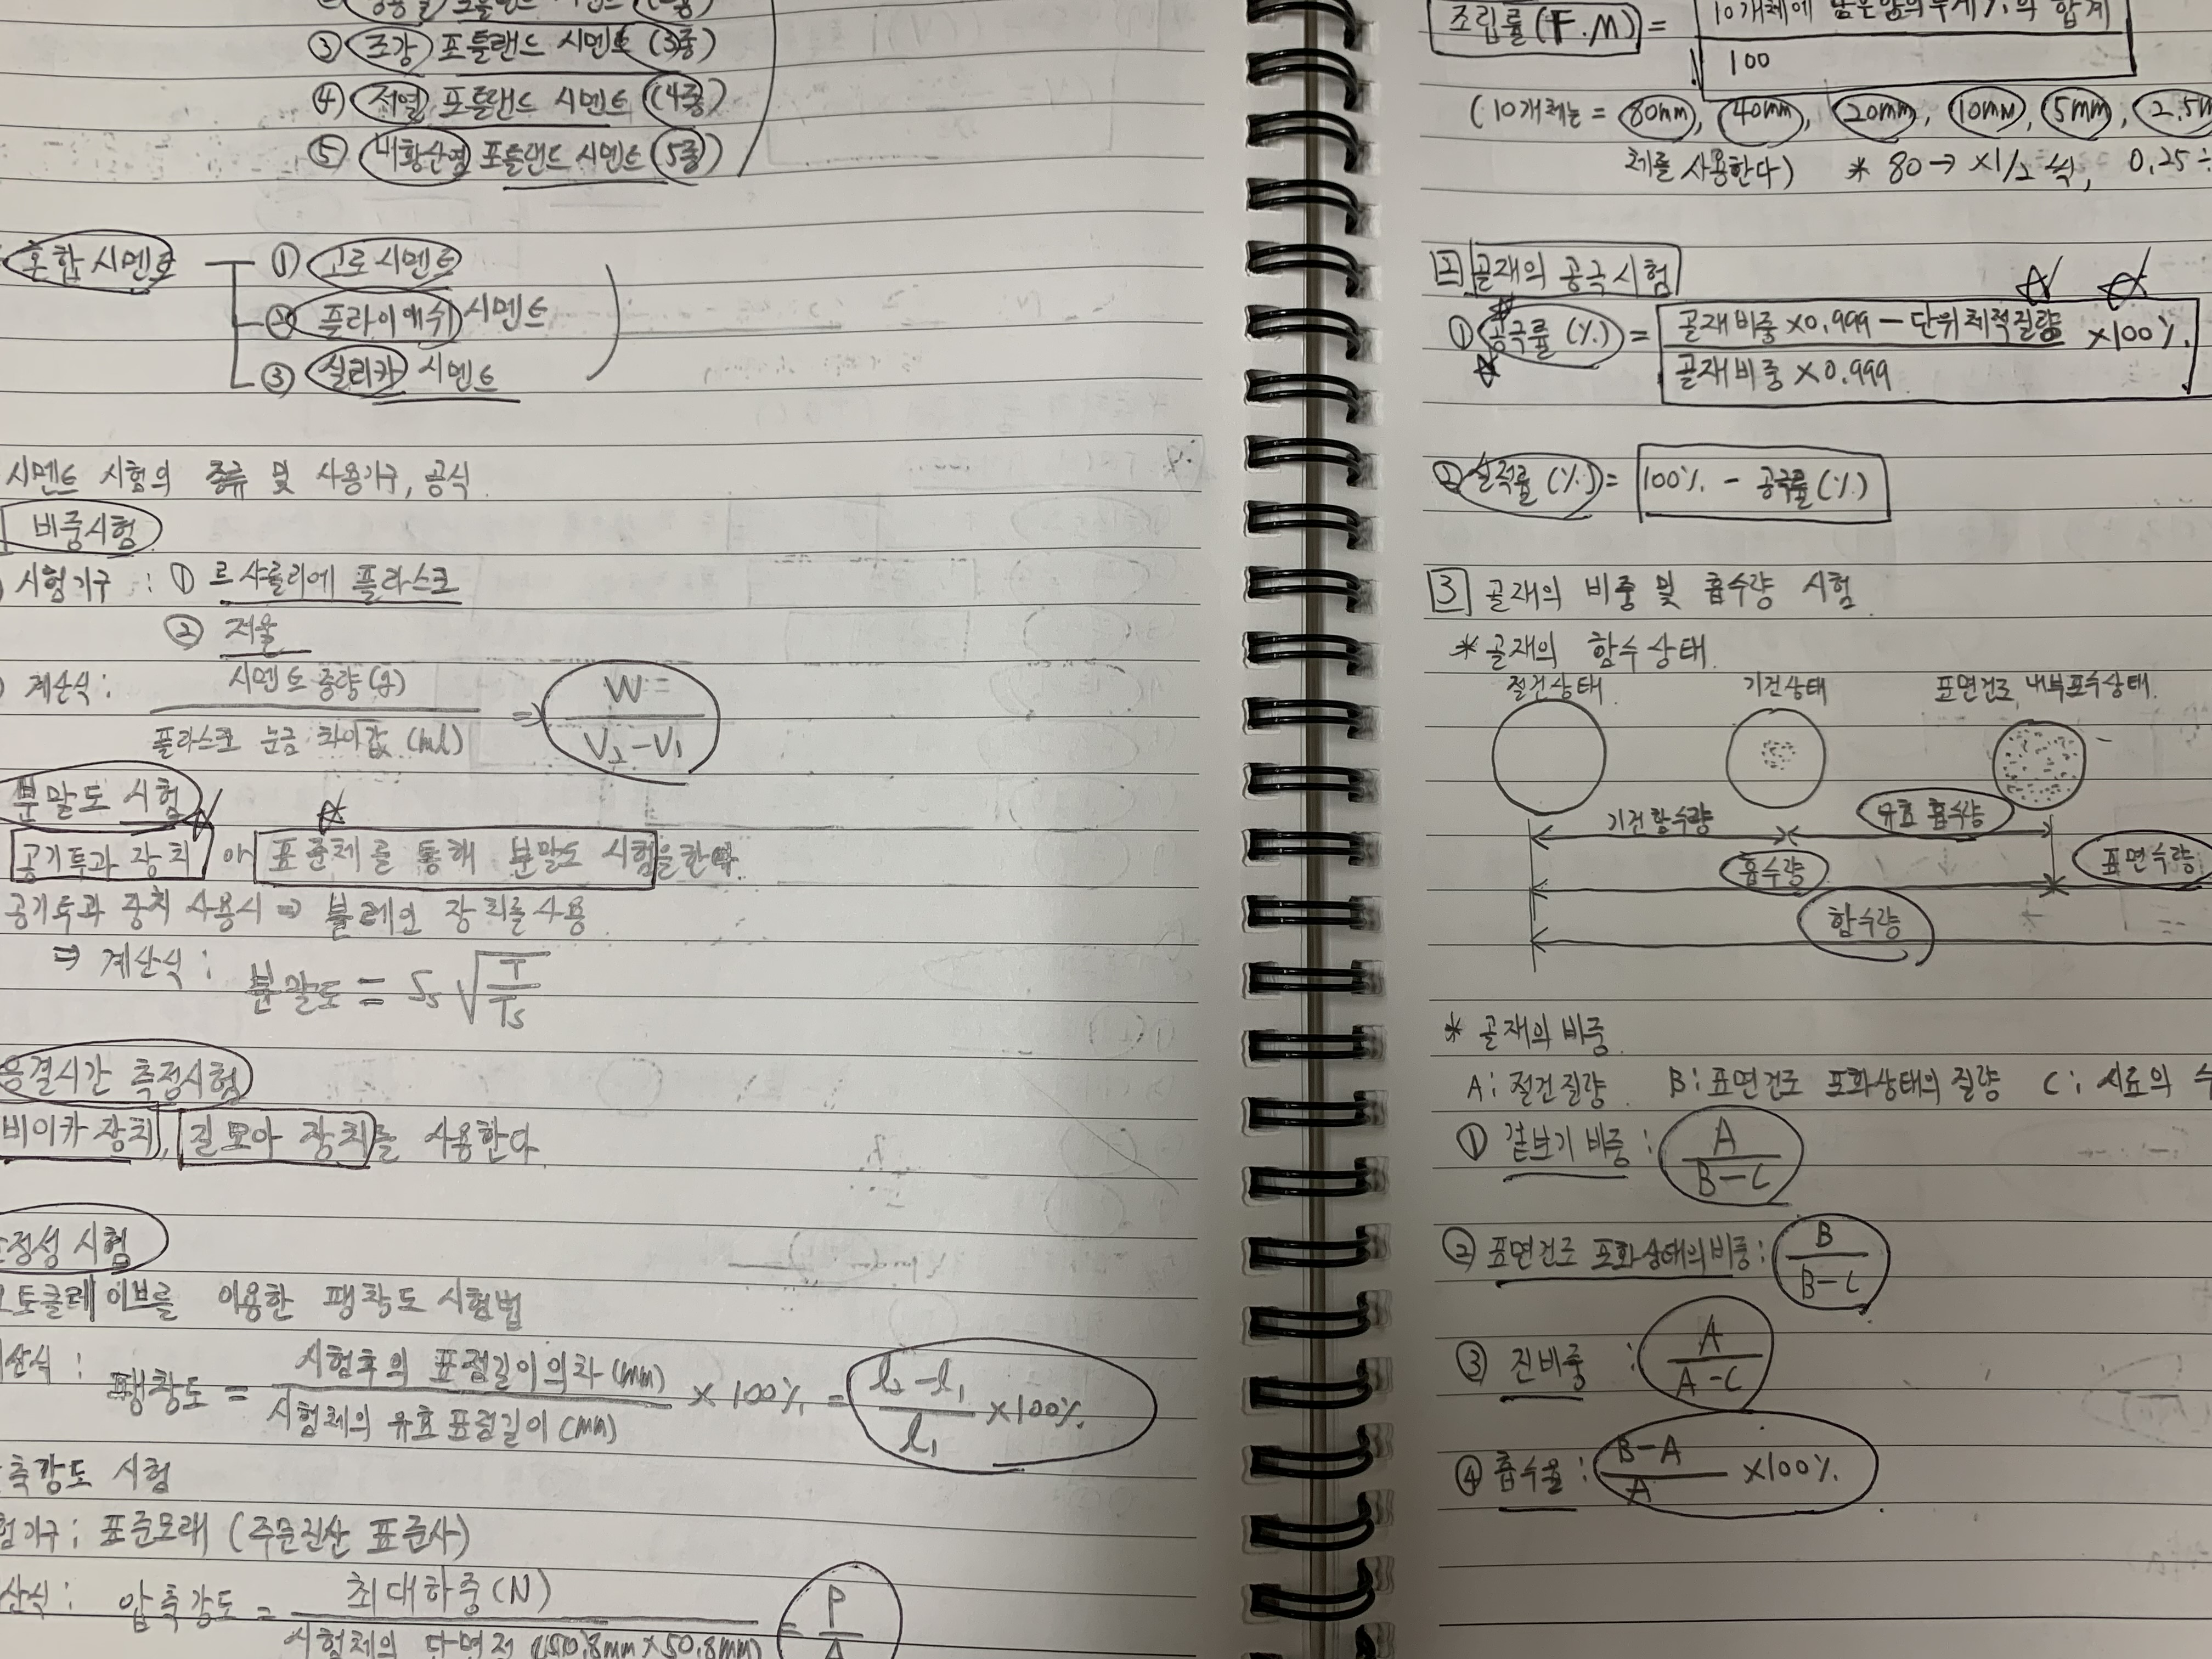 ③ 조강 포틀랜드 시멘트 (3종)
④ 저열 포틀랜드 시멘트 (4종)
⑤ 내황산염 포틀랜드 시멘트 (5종)
혼합 시멘트
① 고로 시멘트
② 플라이애쉬 시멘트
③ 실리카 시멘트
시멘트 시험의 종류 및 사용기구, 공식
비중시험
시험기구 : ① 르샤틀리에 플라스크
② 저울
계산식: 시멘트 중량(g)
플라스크 눈금 차이값 (ml)
⇒ W
V₂-V₁
분말도 시험
공기투과 장치 아 표준체를 통해 분말도 시험을한다.
공기투과 장치 사용시 ⇒ 블레인 장치를 사용
⇒ 계산식 : 분말도 = Ss √T/Ts
응결시간 측정시험
비이카 장치, 길모아 장치를 사용한다.
정성 시험
토클레이브를 이용한 팽창도 시험법
산식 : 팽창도 = 시험후의 표점길이의차 (mm)
시험체의 유효표점길이 (mm)
× 100% = l₂-l₁
l₁
×100%
축강도 시험
험기구 : 표준모래 (주문진산 표준사)
산식 : 압축강도 = 최대하중(N)
시험체의 단면적 (50.8mm×50.8mm)
= P
A
조립률(F.M) = 10개체에 남은양의무게%의 합계
100
(10개체는 = 80mm, 40mm, 20mm, 10mm, 5mm, 2.5
체를 사용한다) * 80→ ×1/2 씩, 0.25÷
2 골재의 공극시험
① 공극률 (%) = 골재비중×0.999-단위체적질량
골재비중×0.999
×100%
② 실적률 (%) = 100% - 공극률(%)
3 골재의 비중 및 흡수량 시험
* 골재의 함수상태
절건상태 기건상태 표면건조 내부포수상태
기건함수량 유효 흡수량
흡수량 표면수량
함수량
* 골재의 비중
A: 절건질량 B: 표면건조 포화상태의 질량 C: 시료의 수
① 겉보기 비중 : A
B-C
② 표면건조 포화상태의비중 : B
B-C
③ 진비중 : A
A-C
④ 흡수율 : B-A
A
×100%